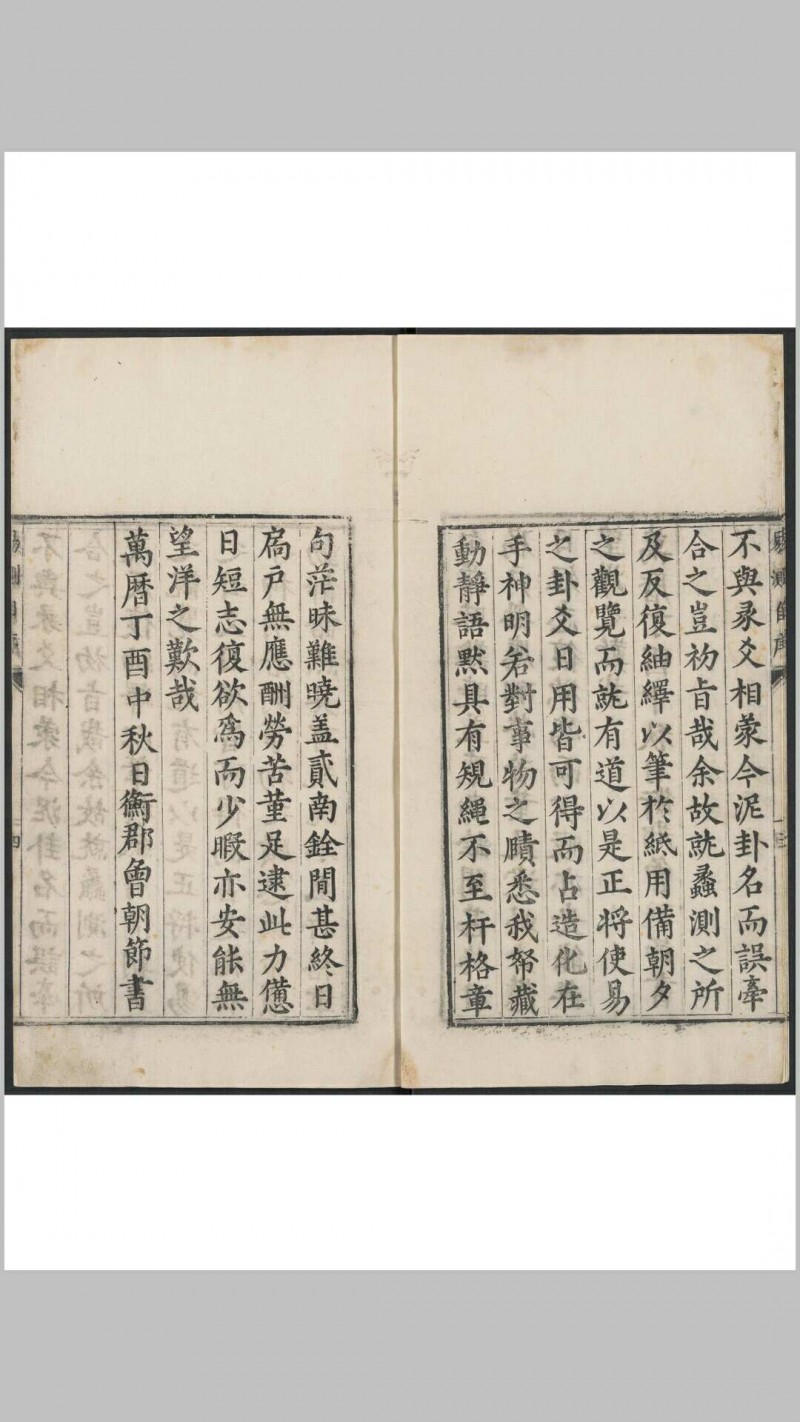 不與彖爻相蒙今泥卦名而誤牽
合之豈初旨哉余故就蠡測之所
及反復紬繹以筆於紙用備朝夕
之觀覽而就有道以是正將使易
之卦爻日用皆可得而占造化在
手神明若對事物之賾悉我帑藏
動靜語默具有規䋲不至杆格章
句茫昧難曉盖貳南銓閒甚終日
扃戶無應酬勞苦葷足逮此力憊
日短志復欲爲而少暇亦安能無
望洋之歎哉
萬曆丁酉中秋日衡郡曾朝節書